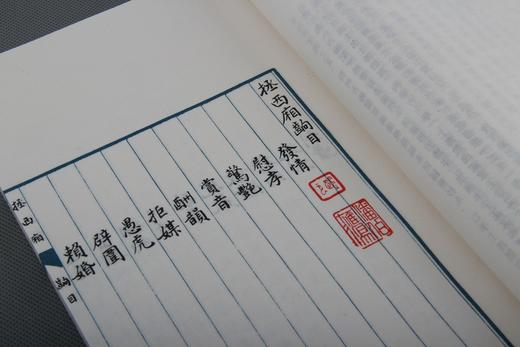 拯西廂齣目
發情
慰孝
驚艷
賞音
酬韻
拒媒
愚虎
辟圍
賴婚
拯西廂
齣目